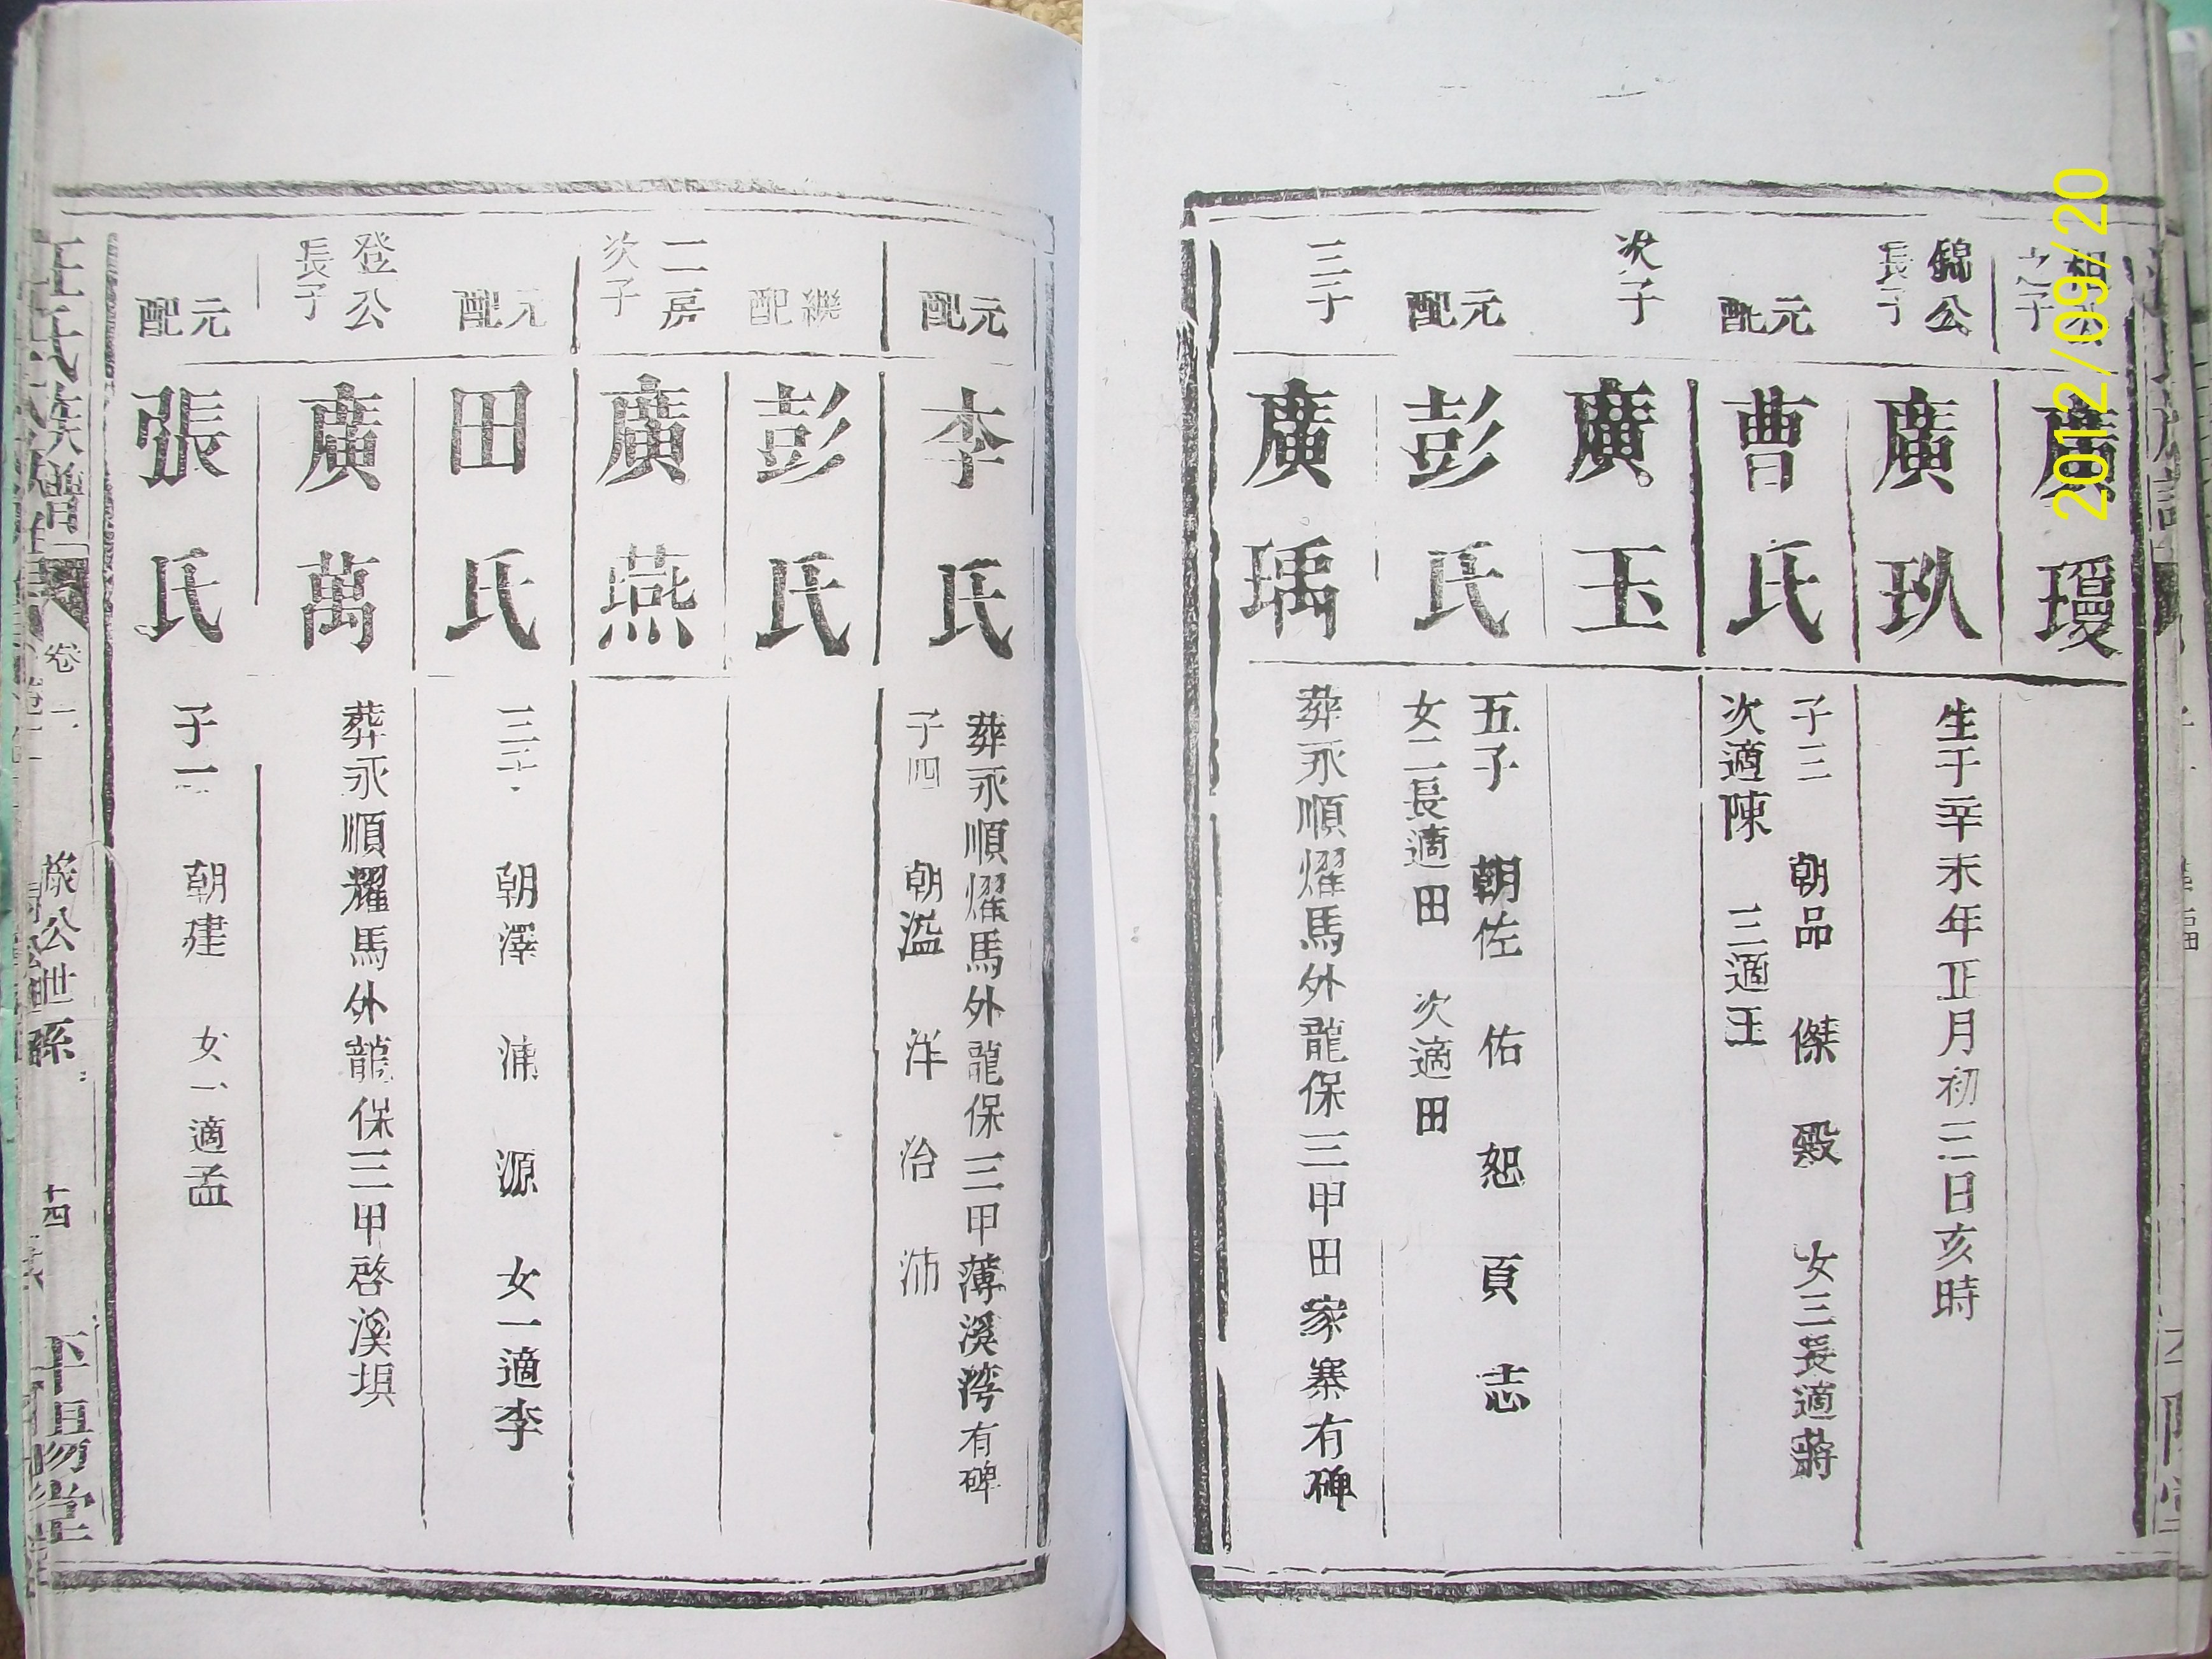 之子
廣瓊
錦公
長子
廣玖
生于辛未年正月初三日亥時
元配
曹氏
子三 朝品 傑 殿 女三長適蔣
次適陳 三適王
次子
廣玉
元配
彭氏
五子 朝佐 佑 恕 頁 志
女二長適田 次適田
三子
廣瑀
葬永順燿馬外龍保三甲田家寨有碑
元配
李氏
葬永順燿馬外龍保三甲薄溪湾有碑
子四 朝溢 洋 治 沛
繼配
彭氏
二房
次子
廣燕
元配
田氏
三子 朝澤 浦 源 女一適李
登公
長子
廣萬
葬永順耀馬外龍保三甲啓溪垻
元配
張氏
子一 朝建 女一適孟
汪氏族譜 卷一 公世系 十四 平陽堂
2012/09/20